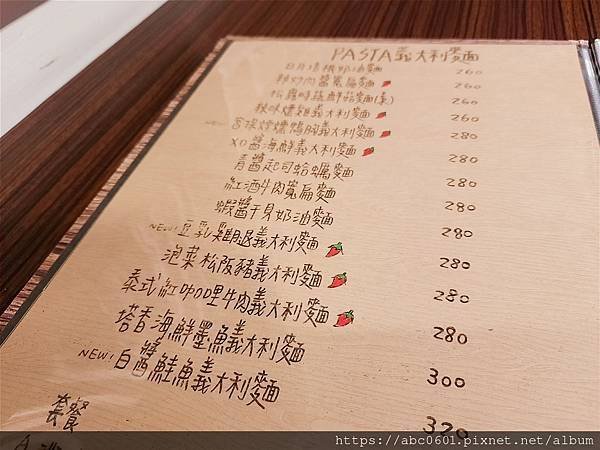 PASTA義大利麵
奶油麵 260
辣炒肉醬寬扁麵 260
松露時蔬鮮菇麵(素) 260
辣味燻雞義大利麵 260
NEW! 燻鴨胸義大利麵 280
XO醬海鮮義大利麵 280
青醬起司蛤蠣麵 280
紅酒牛肉寬扁麵 280
蝦醬干貝奶油麵 280
NEW! 豆乳雞腿義大利麵 280
泡菜松阪豬義大利麵 280
泰式紅咖哩牛肉義大利麵 280
塔香海鮮墨魚義大利麵 300
NEW! 白醬鮭魚義大利麵 320
套餐
https://abc0601.pixnet.net/album